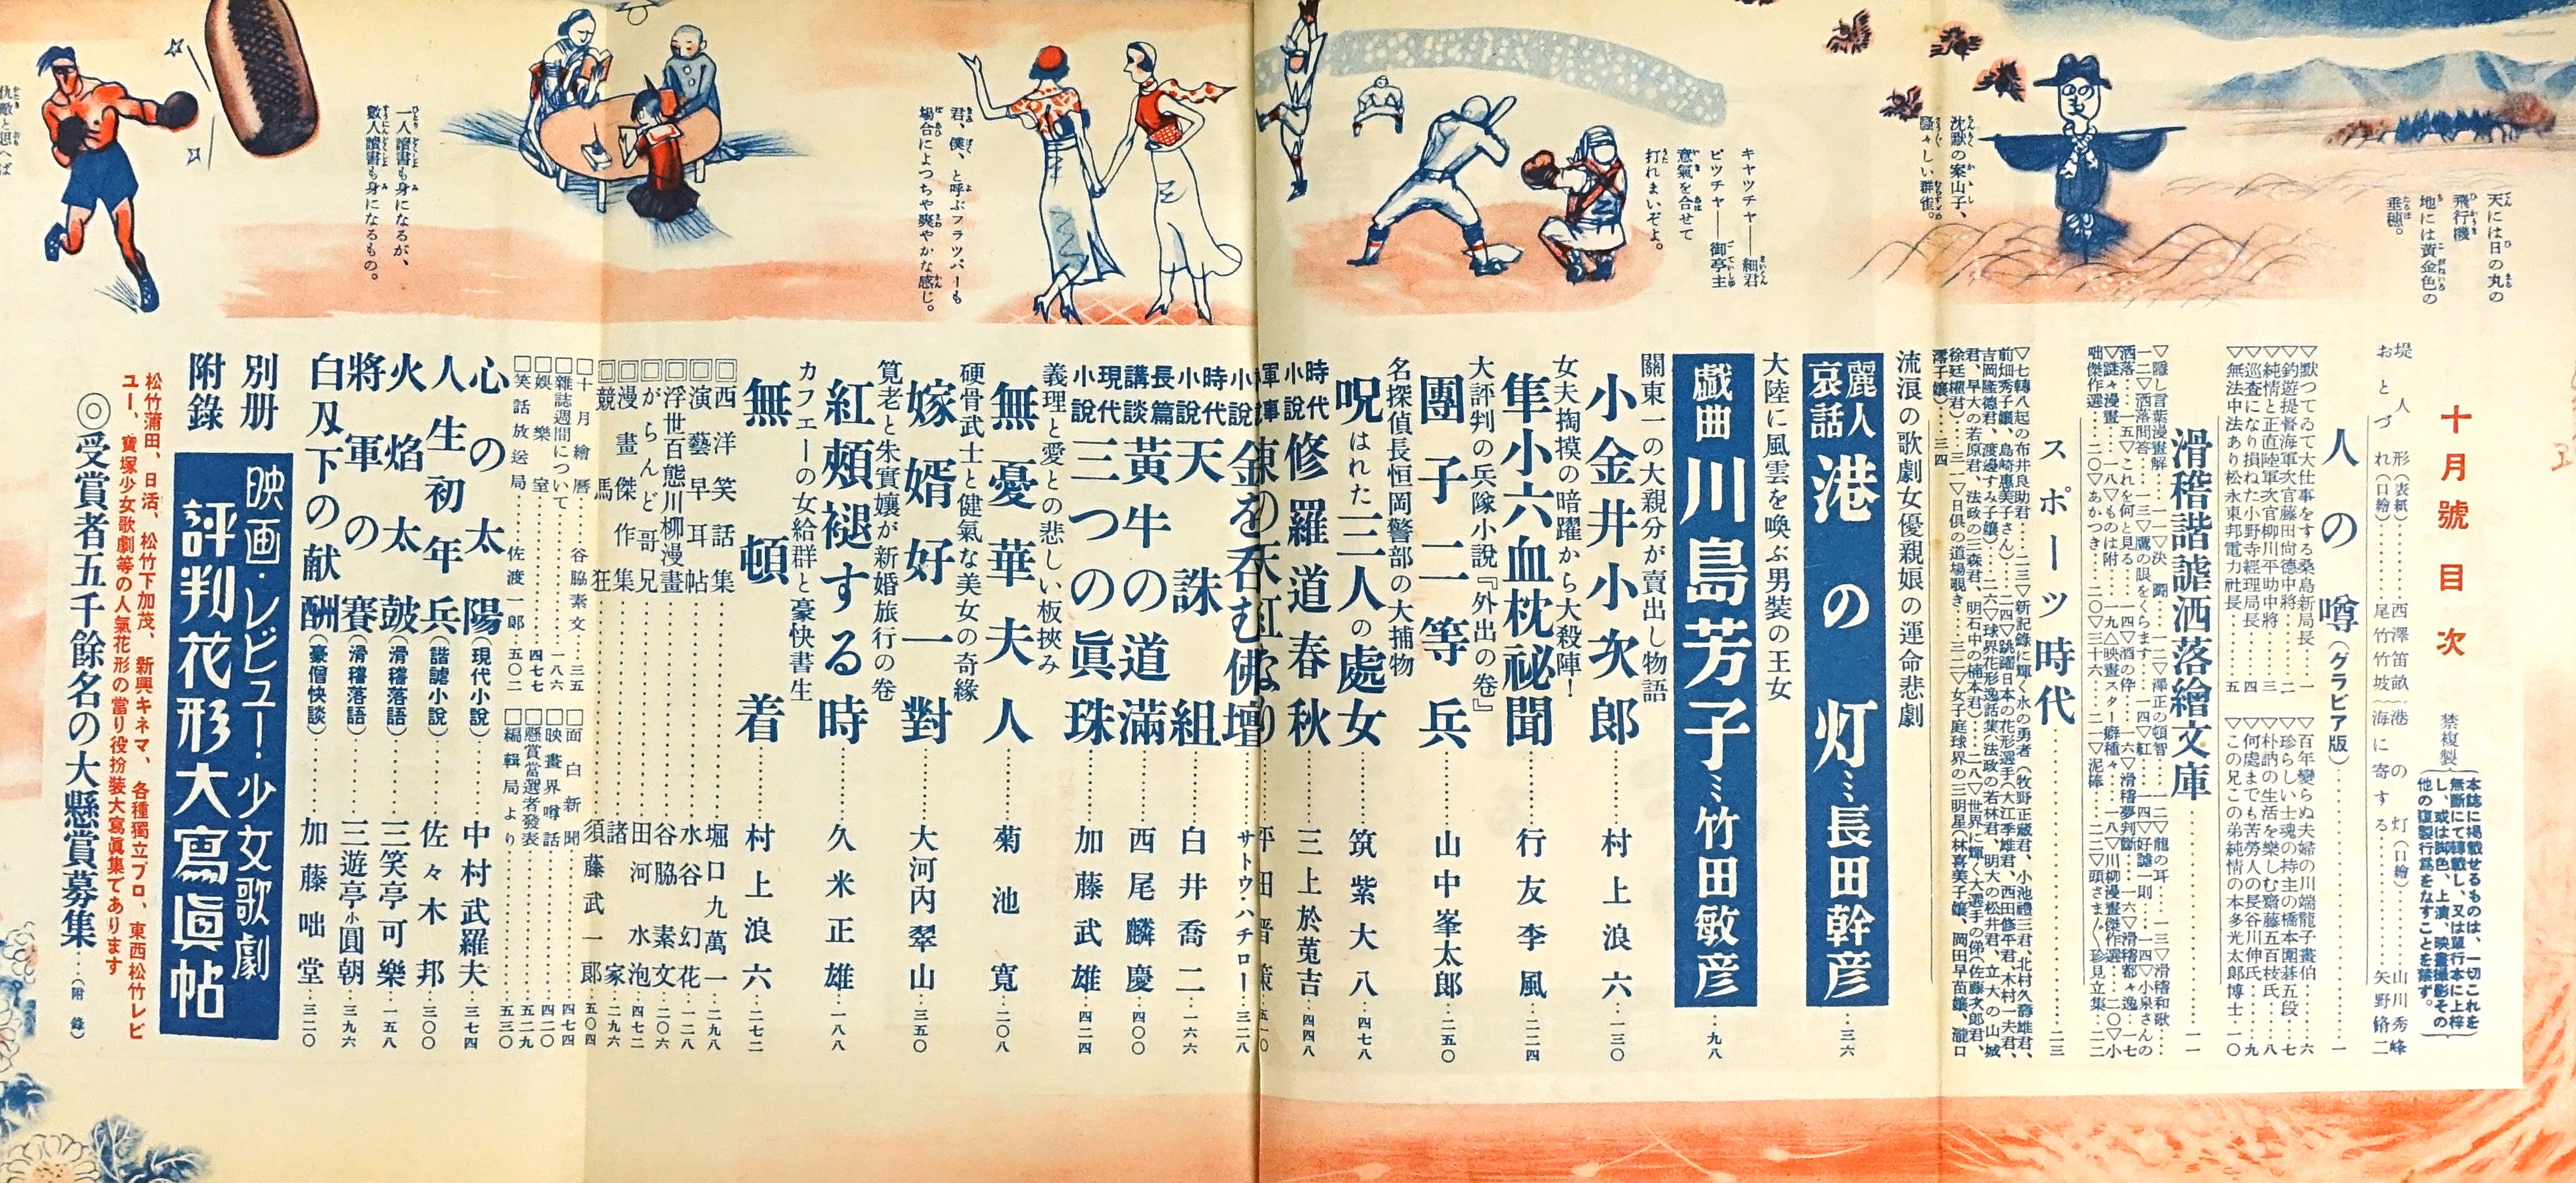 十月號目次
禁複製
本誌に掲載せるものは、一切これを
無斷にて轉載し、又は單行本に上梓
し、或は脚色、上演、映畫撮影その
他の複製行爲をなすことを禁ず。
堤人形(表紙)………西澤笛畝
おとづれ(口繪)………尾竹竹坡
港の灯(口繪)………山川秀峰
海に寄する………矢野
人の噂(グラビア版)………一
▽默つてゐて大仕事をする桑島新局長…一
▽釣遊提督海軍次官藤田尙德中將…二
▽純情と正直陸軍次官柳川平助中將…三
▽巡査になり損ねた小野寺經理局長…四
▽無法中法あり松永東邦電力社長…五
▽百年變らぬ夫婦の川端龍子畫伯…六
▽珍らしい士魂の持主の橋本圍碁五段…七
▽朴訥の生活を樂しむ齋藤五百枝氏…八
▽何處までも苦勞人の長谷川伸氏…九
▽この兄この弟純情の本多光太郎博士…一〇
滑稽諧謔洒落繪文庫………一一
▽隱し言葉漫畫解…一一▽決鬪…一二▽澤正の頓智…一二▽龍の耳…一三▽滑稽和歌…
一二▽洒落問答…一三▽鷹の眼をくらます…一四▽紅一…一四▽好謔一則…一四▽小泉さんの
洒落…一五▽これを何と見る…一四▽酒の伜…一六▽滑稽夢判斷…一六▽滑稽都々逸…一七
▽謎々漫畫…一八▽ものは附…一九△映畫スター癖種々…一八▽川柳漫畫傑作選…二〇▽小
咄傑作選…二〇▽あかつき…二〇▽三十六…二一▽泥棒…二二▽頭さま〴〵珍見立集…二二
スポーツ時代………二三
▽七轉八起の布井良助君…二三▽新記錄に輝く水の勇者(牧野正蔵君、小池禮三君、北村久壽雄君、
前畑秀子孃、島崎惠美子さん)…二四▽跳躍日本の花形選手(大江季雄君、西田修平君、木村一夫君、
吉岡隆德君、渡邊すみ子孃)…二六▽球界花形逸話集(法政の若林君、明大の松井君、立大の山城
君、早大の若原君、法政の三森君、明石中の楠本君)…二八▽世界に輝く大選手の俤(佐藤次郎君、
徐廷權君)…三一▽日倶の道場覗き…三二▽女子庭球界の三明星(林喜美子孃、岡田早苗孃、瀧口
澪子孃)…三四
流浪の歌劇女優親娘の運命悲劇
麗人哀話 港の灯…長田幹彦…三六
大陸に風雲を喚ぶ男裝の王女
戲曲 川島芳子…竹田敏彦…九八
關東一の大親分が賣出し物語
小金井小次郎………村上浪六…一三〇
女夫掏摸の暗躍から大殺陣!
隼小六血枕祕聞………行友李風…二二四
大評判の兵隊小說『外出の卷』
團子二等兵………山中峯太郎…二五〇
名探偵長恒岡警部の大捕物
呪はれた三人の處女………筑紫大八…四七八
時代小說 修羅道春秋………三上於菟吉…四四八
軍事小說 東の天紅なり………平田晋策…五一〇
金を呑む佛壇………サトウ・ハチロー…三二八
時代小說 天誅組………白井喬二…一六六
長篇講談 黃牛の道滿………西尾麟慶…四〇〇
現代小說 三つの眞珠………加藤武雄…四二四
義理と愛との悲しい板挾み
無憂華夫人………菊池寬…二〇八
硬骨武士と健氣な美女の奇緣
嫁婿好一對………大河內翠山…三五〇
筧老と朱實孃が新婚旅行の卷
紅頰褪する時………久米正雄…一八八
カフエーの女給群と豪快書生
無頓着………村上浪六…二七二
西洋笑話集………堀口九萬一…二九八
演藝早耳帖………水谷幻花…一二八
浮世百態川柳漫畫………谷脇素文…二〇六
がらんど哥兄………田河水泡…四七二
漫畫傑作集………諸家…二九六
競馬狂………須藤武一郎…五〇四
十月繪曆………谷脇素文…三五
雜誌週間について………一八六
娛樂室………四七七
笑話放送局………佐渡一郎…五〇二
面白新聞………四七四
映畫界噂話………四二〇
懸賞當選者發表………五二九
編輯局より………五三〇
心の太陽(現代小說)………中村武羅夫…三七四
人生初年兵(諧謔小說)………佐々木邦…三〇〇
火焰太皷(滑稽落語)………三笑亭可樂…一五八
將軍の賽(滑稽落語)………三遊亭小圓朝…三九六
白刄下の献酬(豪僧快談)………加藤咄堂…三二〇
別册附錄
映画・レビュー!少女歌劇
評判花形大寫眞帖
松竹蒲田、日活、松竹下加茂、新興キネマ、各種獨立プロ、東西松竹レビ
ユー、寶塚少女歌劇等の人氣花形の當り役扮裝大寫眞集であります
◎受賞者五千餘名の大懸賞募集…(附錄)
天には日の丸の
飛行機
地には黃金色の
垂穗。
沈默の案山子、
騷々しい群雀。
キヤツチヤ――細君
ピツチヤ――御亭主
意氣を合せて
打れまいぞよ。
君、僕、と呼ぶフラツパーも
場合によつちや爽やかな感じ。
一人讀書も身になるが、
數人讀書も身になるもの。
仇敵と思へば